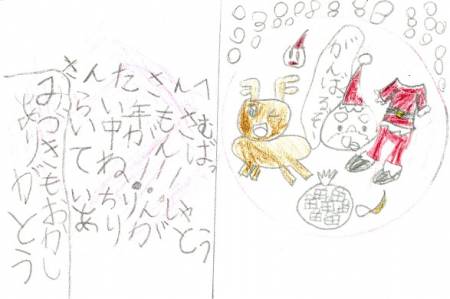 さんたさんへ
らい年もさむ
い中がんばっ
てね!!!
いちりんしゃ
ありがとう
みつきもおかし
ありがとう
がんばるぞ